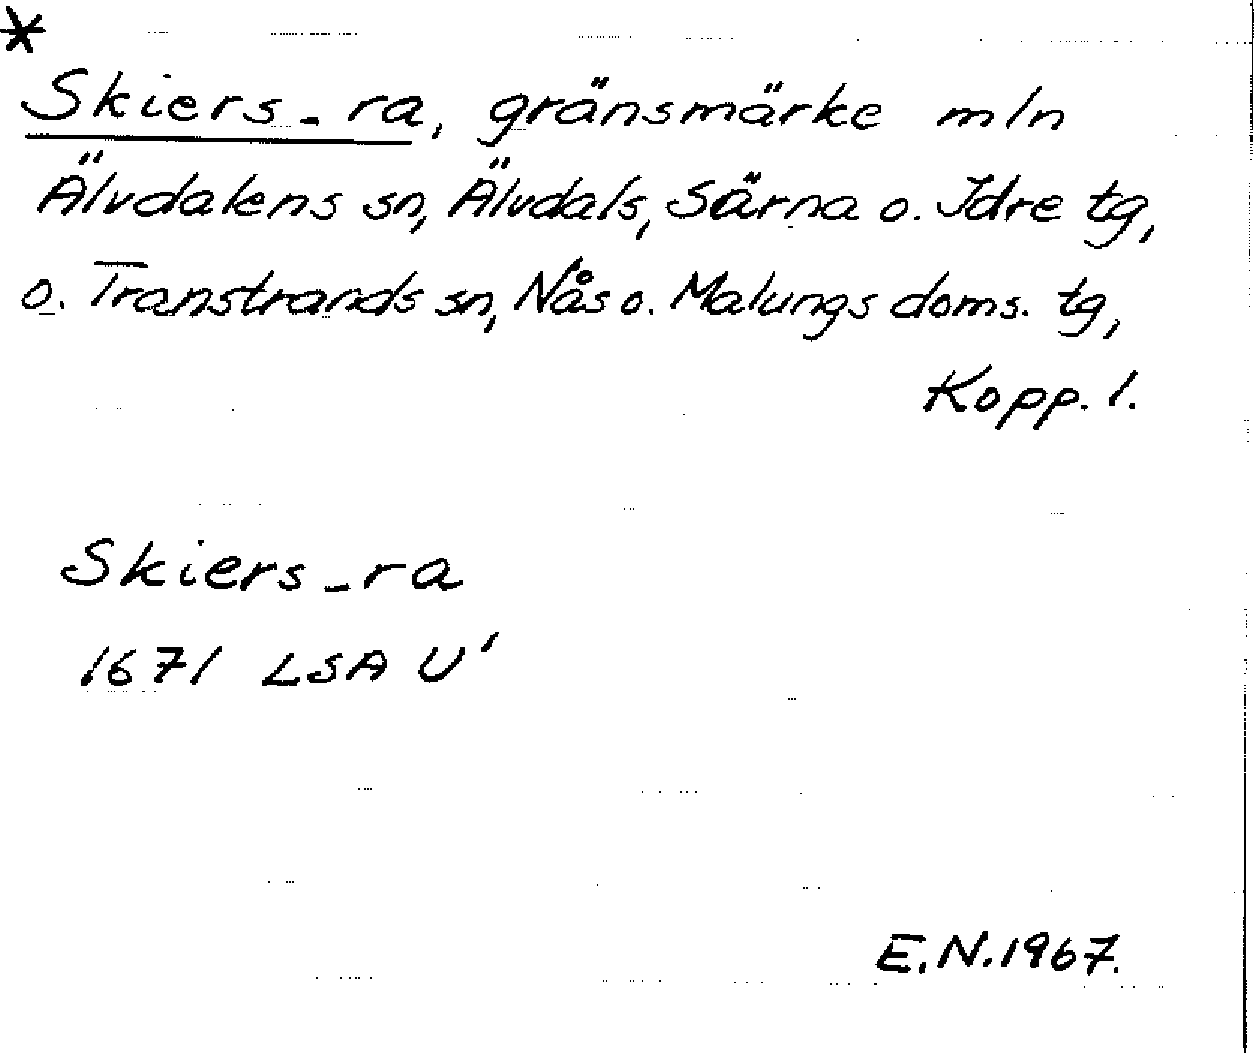 *
Skiers-ra, gränsmärke mln
Älvdalens sn, Älvdals, Särna o. Idre tg,
o. Transtrands sn, Nås o. Malungs doms. tg,
Kopp. l.
Skiers-ra
1671 LSA U'
E.N. 1967.